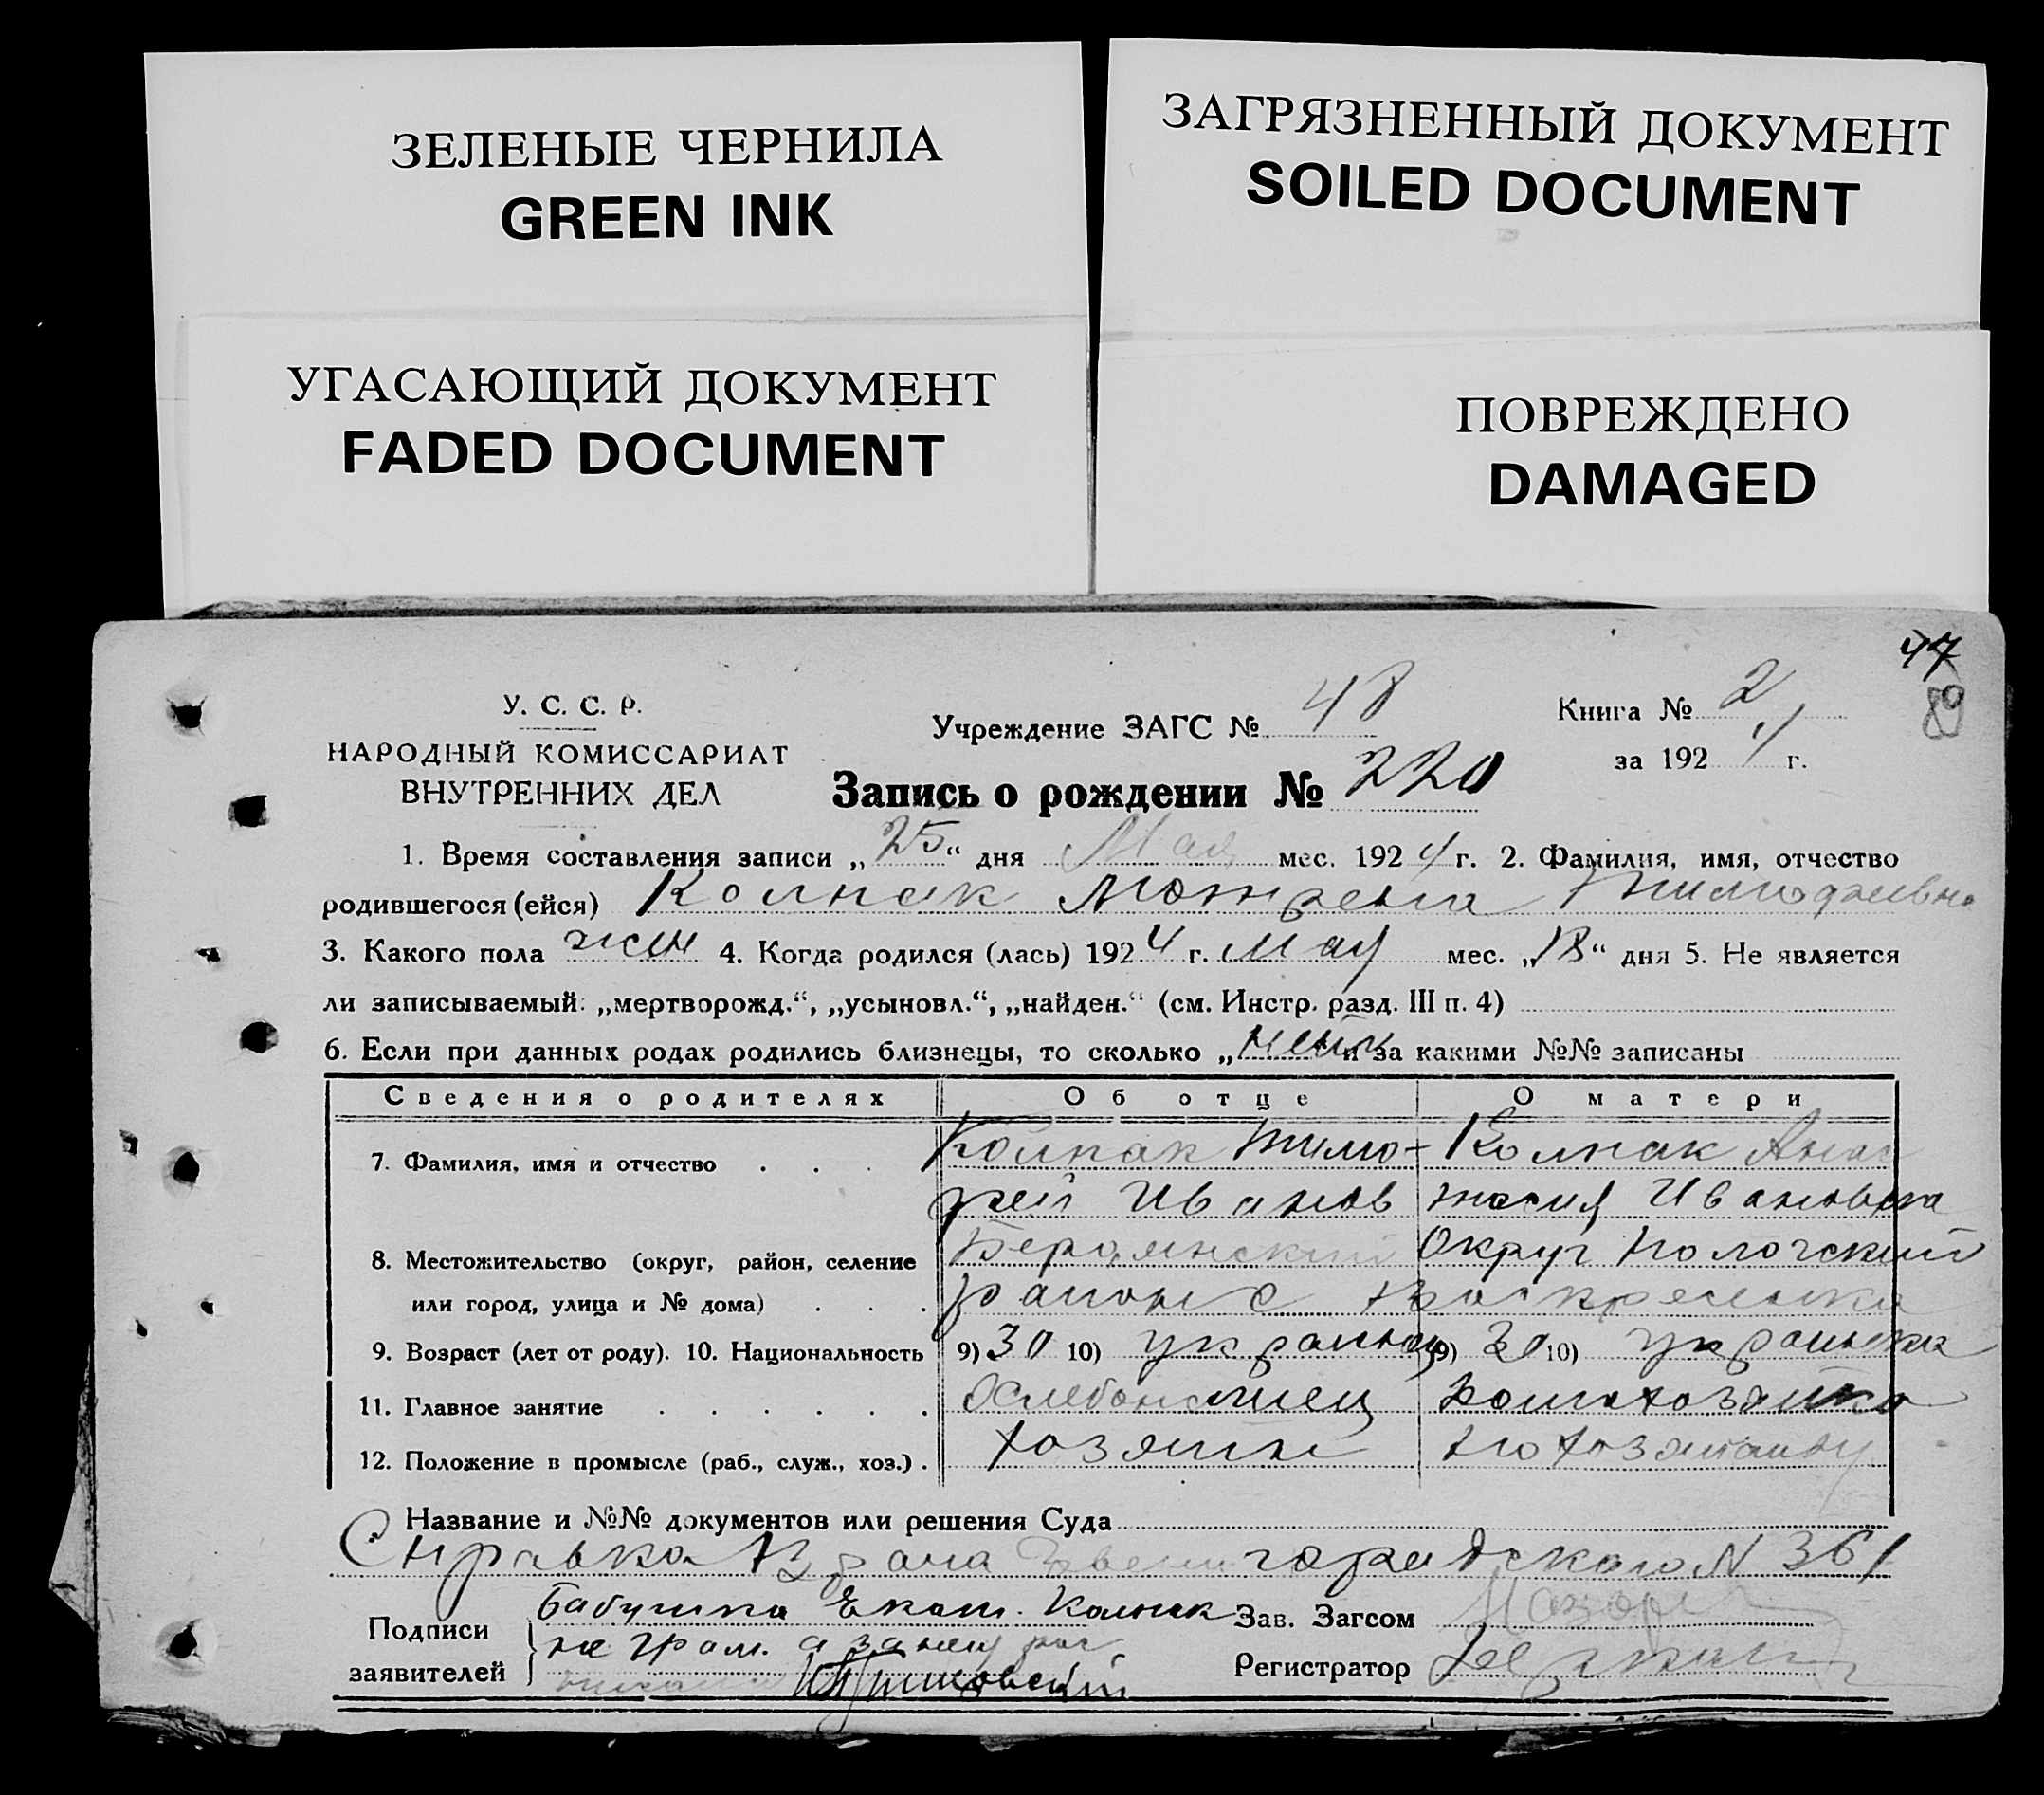 ЗЕЛЕНЫЕ ЧЕРНИЛА
GREEN INK
ЗАГРЯЗНЕННЫЙ ДОКУМЕНТ
SOILED DOCUMENT
УГАСАЮЩИЙ ДОКУМЕНТ
FADED DOCUMENT
ПОВРЕЖДЕНО
DAMAGED
47
89
У. С. С. Р.
НАРОДНЫЙ КОМИССАРИАТ
ВНУТРЕННИХ ДЕЛ
Учреждение ЗАГС № 48
Книга № 2
за 1924 г.
Запись о рождении № 220
1. Время составления записи „25“ дня Мая мес. 1924 г. 2. Фамилия, имя, отчество
родившегося (ейся) Колпак Мотрена Тимофеевна
3. Какого пола жен 4. Когда родился (лась) 1924 г. Мая мес. „18“ дня 5. Не является
ли записываемый: „мертворожд.“, „усыновл.“, „найден.“ (см. Инстр. разд. III п. 4)
6. Если при данных родах родились близнецы, то сколько „нет и за какими №№ записаны
Сведения о родителях Об отце О матери
7. Фамилия, имя и отчество . . . Колпак Тимо- Колпак Анас
фей Иванов тасия Ивановна
8. Местожительство (округ, район, селение Бердянский Округ Пологский
или город, улица и № дома) . . . район с Воскресенка
9. Возраст (лет от роду). 10. Национальность 9) 30 10) украинец 9) 30 10) украинка
11. Главное занятие . . . . . . Хлебопашец Домохозяйка
12. Положение в промысле (раб., служ., хоз.) . хозяин по хозяйству
Название и №№ документов или решения Суда
Справка Врача городского N 361
Подписи
заявителей
Бабушка Екат. Колпак
не грам. а за нею рас
Зав. Загсом
Регистратор